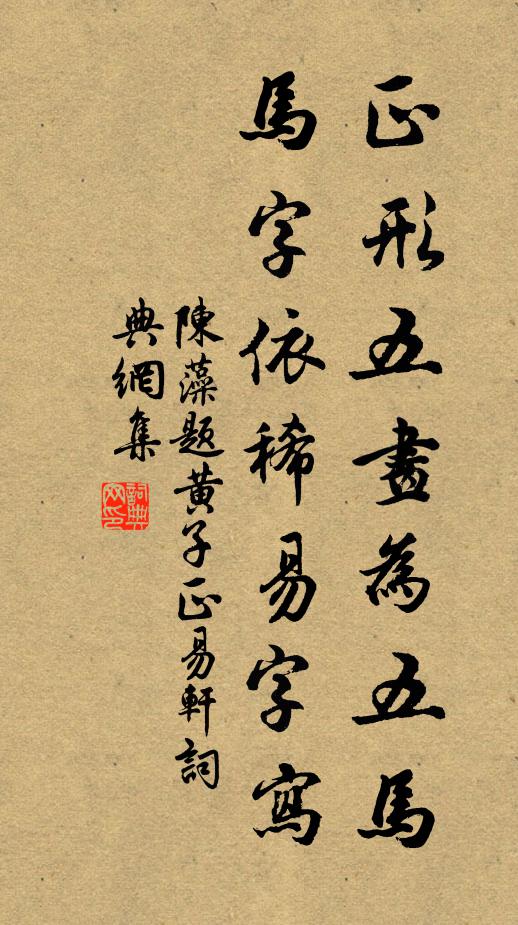 正形五畫為五馬
馬字依稀易字寫
陳藻題黃子正易軒詞
典網集
詞典網印